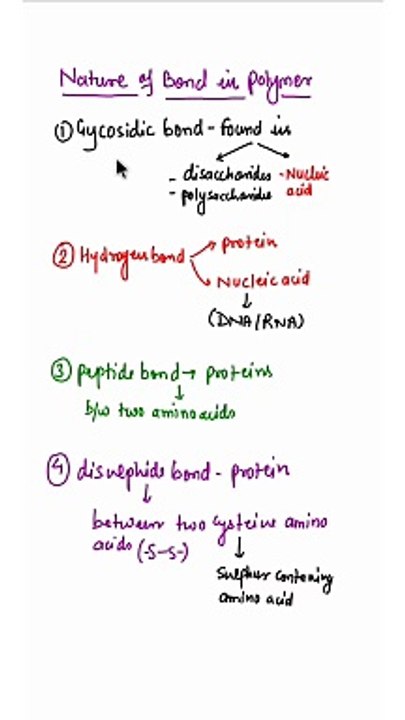 Nature of Bond in Polymer
① Gycosidic bond - found in
- disaccharides - Nucleic
- polysaccharides acid
② Hydrogen bond → protein
→ Nucleic acid
↓
(DNA/RNA)
③ Peptide bond → proteins
↓
b/w two amino acids
④ disulphide bond - protein
↓
between two cysteine amino
acids (-S-S-) ↓
Sulphur contening
amino acid